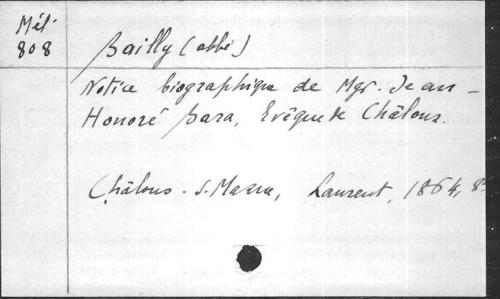 Mél.
808
Bailly (abbé)
Notice biographique de Mgr. Jean-
Honoré Bara, Evêque de Châlons.
Châlons-s.-Marne, Laurent, 1864, 8°